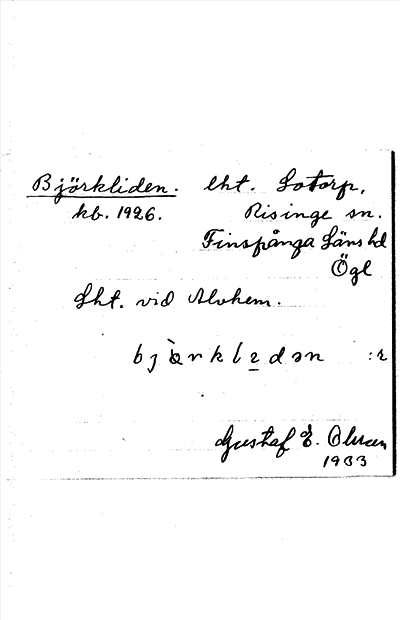 Björkliden. lht. Lotorp,
kb. 1926. Risinge sn.
Finspånga Läns hd
Ögl
Lht. vid Alvhem.
Gustaf E. Olson
1933